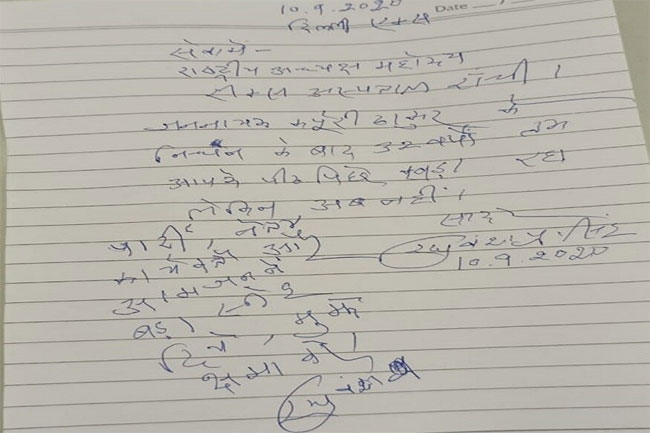 10.9.2020 Date
दिल्ली एम्स
सेवा में -
राष्ट्रीय अध्यक्ष महोदय
रिम्स अस्पताल राँची।
जननायक कर्पूरी ठाकुर के
निधन के बाद 32 वर्षों तक
आपके पीठ पीछे खड़ा रहा
लेकिन अब नहीं।
पार्टी, नेता
कार्यकर्ता और
आमजन ने
बड़ा स्नेह
दिया, मुझे
क्षमा करें।
सादर
रघुवंश प्रo सिंह
10.9.2020